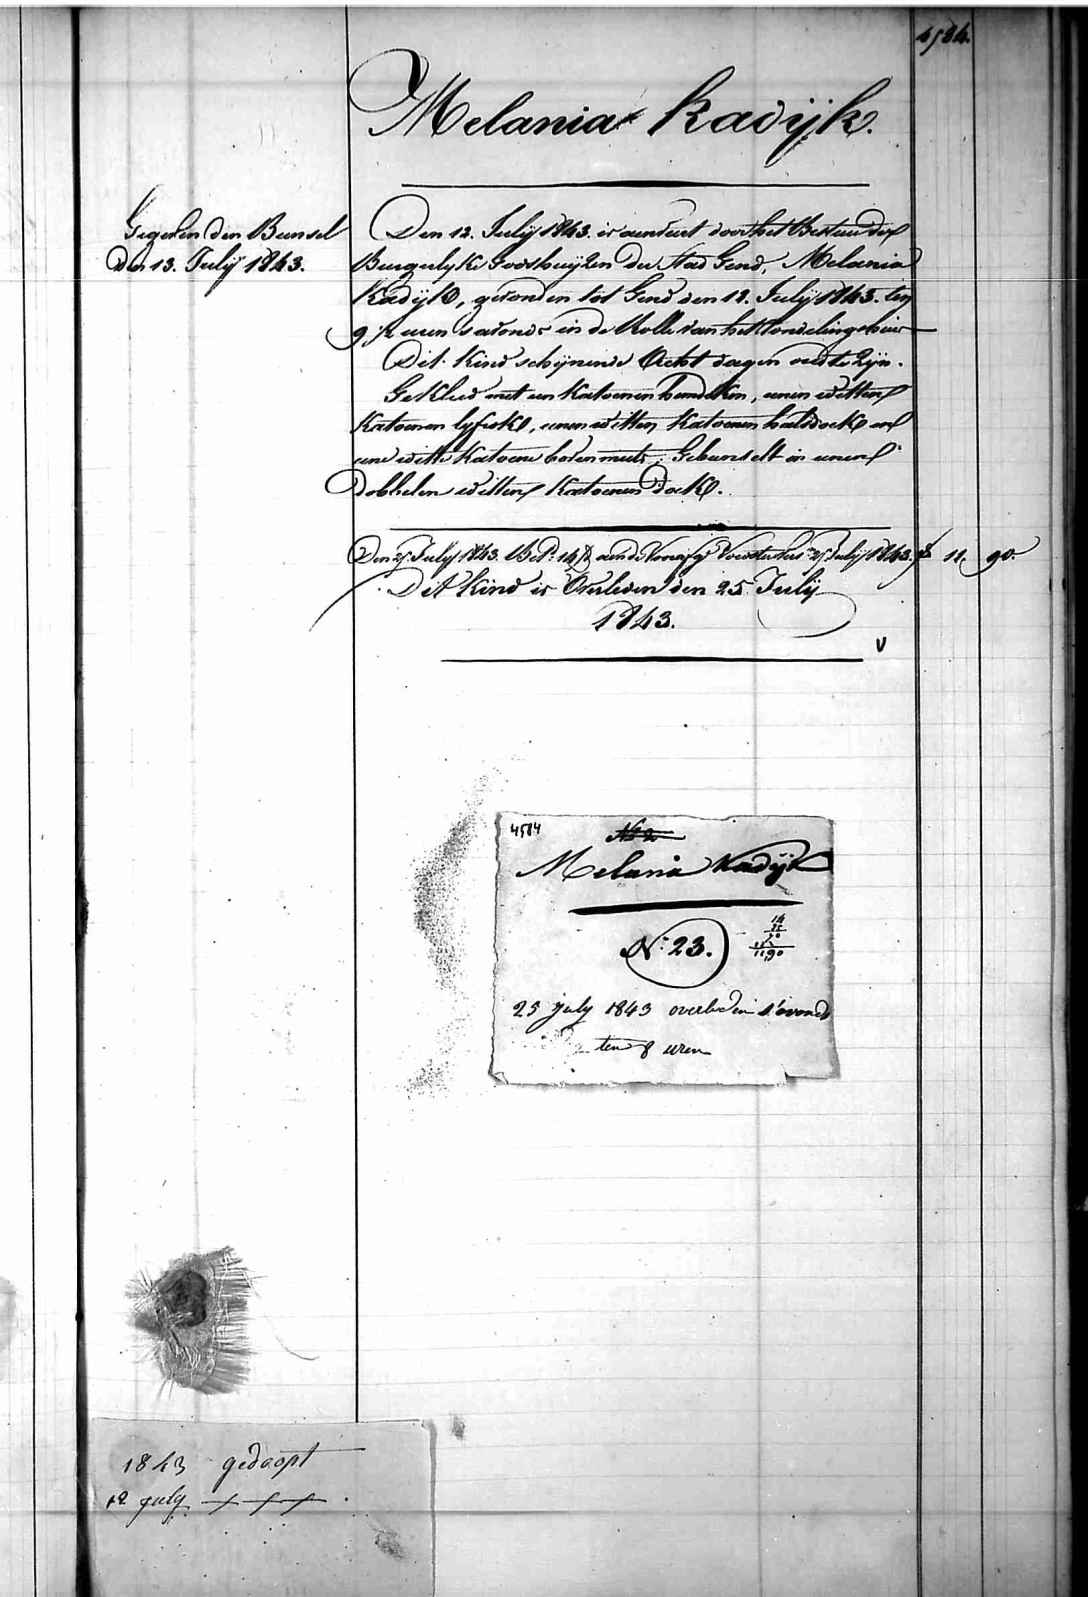 4584.
Melania Kadijk.
Gegeven den Bunsel
den 13. Julij 1843.
Den 12. Julij 1843. is aenveert door het Bestuer der
Burgerlyke Godshuijzen der Stad Gend, Melania
Kadijk, gevonden tot Gend den 12. Julij 1843. ten
9 1/2 uren s'avonds in de Rolle van het vondelingshuis
Dit kind schijnende Acht dagen oud te zijn.
Gekleed met een Katoenen hemdeken, eenen witten
Katoenen lyfrok, eenen witten Katoenen halsdoek en
eene witte Katoene bovenmuts, Gebunselt in eenen
dobbelen witten Katoenen doek.
Den 25 July 1843. Bet. 14 aen de Voedster July 1843. 11. 90.
Dit Kind is Overleden den 25. Julij
1843.
V
4584
No 2
Melania Kadijk
14
11,90
N: 23.
25 july 1843 overleden s'avonds
ten 8 uren
1843 gedoopt
12 july